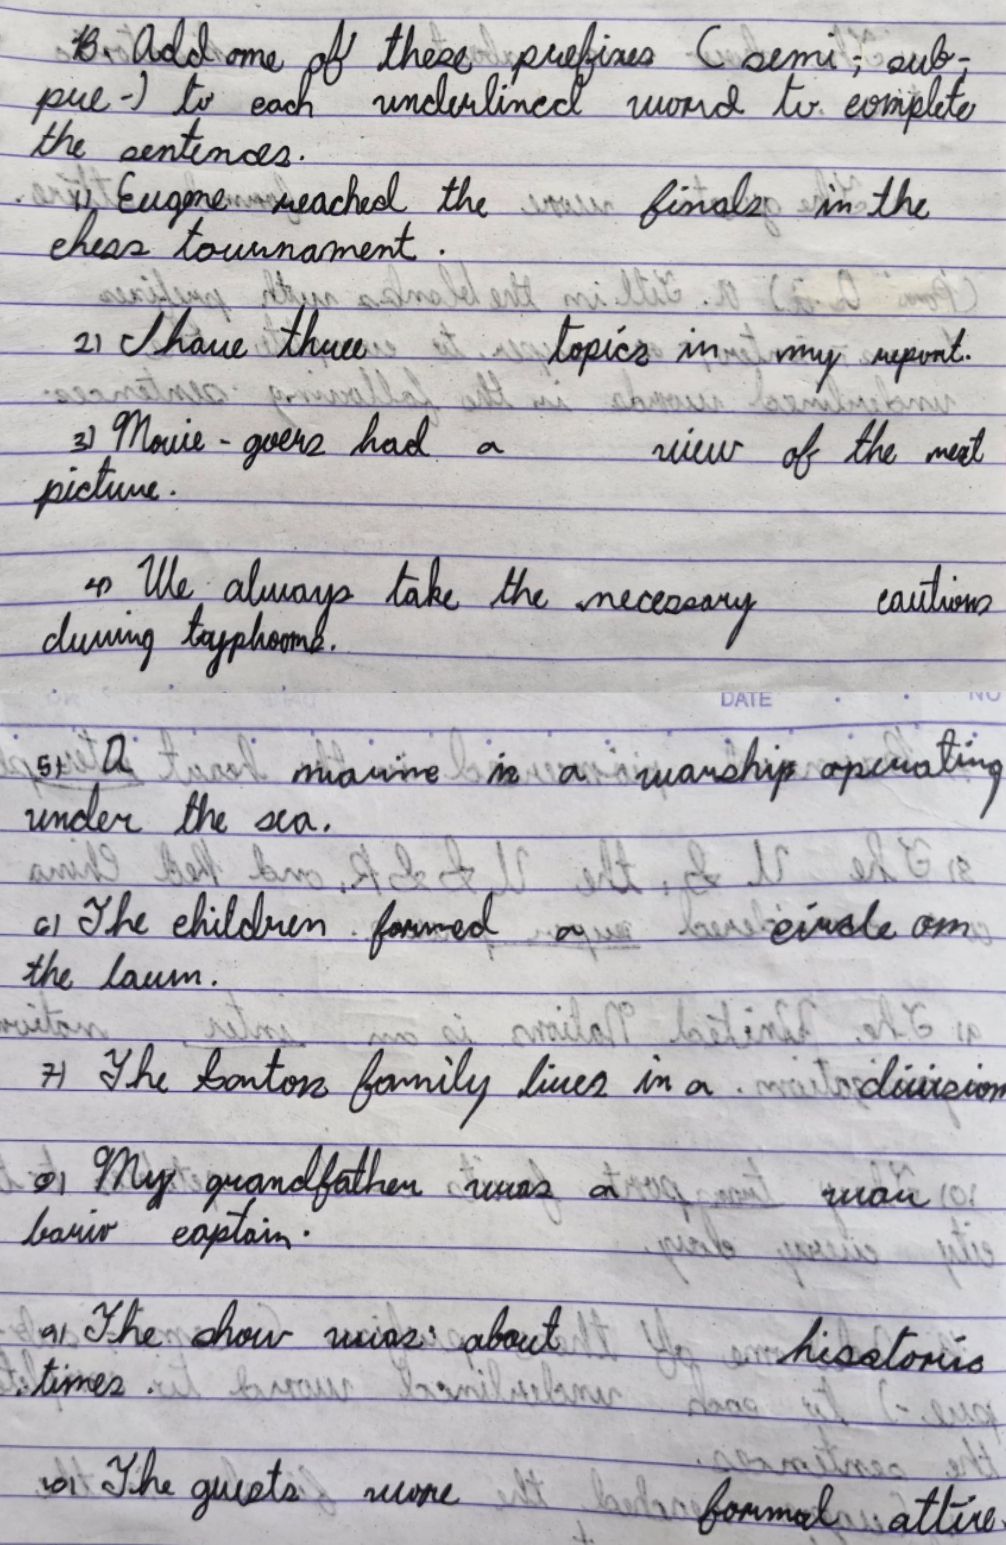 B. Add one of these prefixes (semi-, sub-,
pre-) to each underlined word to complete
the sentences.
1) Eugene reached the finals in the
chess tournament.
2) I have three topics in my report.
3) Movie-goers had a view of the next
picture.
4) We always take the necessary cautions
during typhoons.
DATE NO
5) A marine is a warship operating
under the sea.
6) The children formed a circle on
the lawn.
7) The Santos family lives in a division
8) My grandfather was a war
bario captain.
9) The show was about hisstoric
times.
10) The guests wore formal attire.